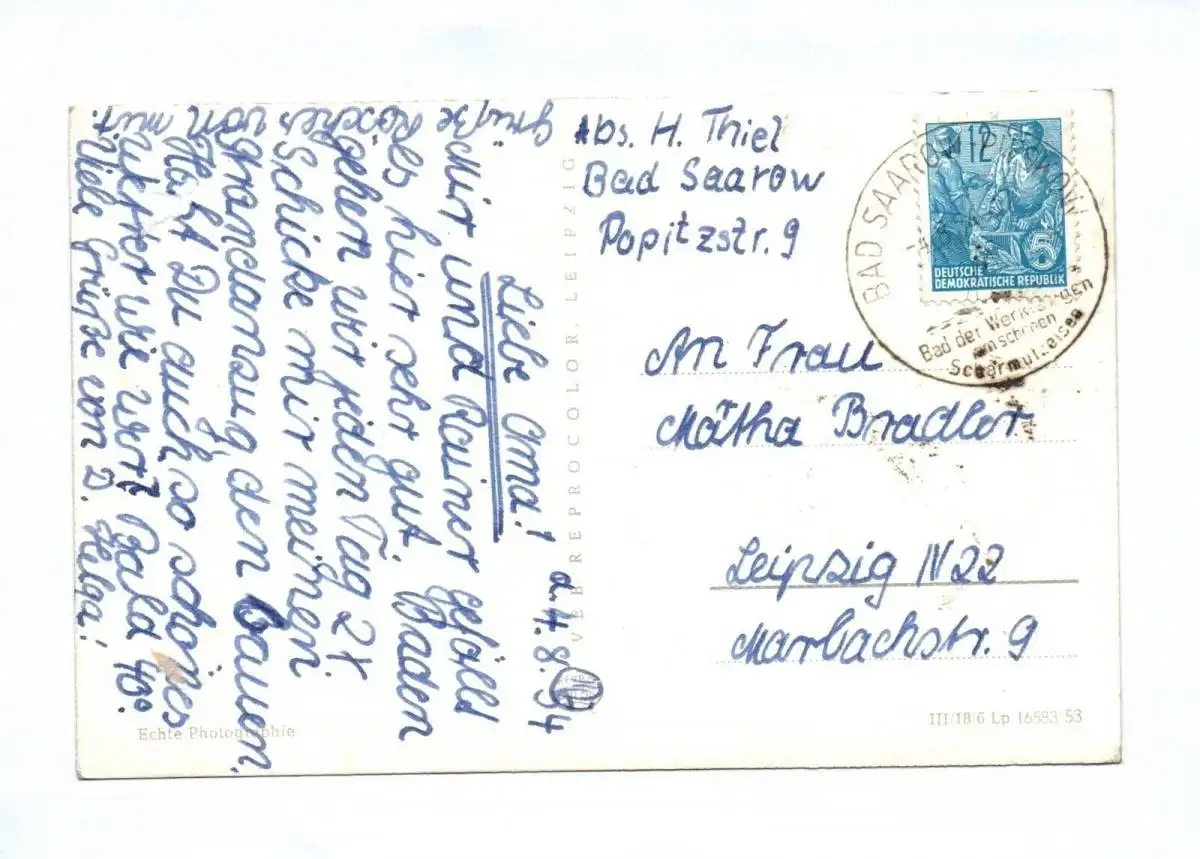 Abs. H. Thiel
Bad Saarow
Popitzstr. 9
12
5
DEUTSCHE
DEMOKRATISCHE REPUBLIK
BAD SAAROW-PIESKOW
Bad der Werktätigen
am schönen
Scharmützelsee
An Frau
Mätha Bradlor
Leipzig N 22
Marbachstr. 9
d. 4. 8. 54
Liebe Oma!
Mir und Rainer gefälld
es hier sehr gut. Baden
gehen wir jeden Tag 2x
Schicke mir meinen
grandansug den bauen.
Hast Du auch so schönes
Wetter wie wir? Bald 40°.
Viele Grüße von D. Helga!
grüße
von mut.
VEB REPROCOLOR, LEIPZIG
Echte Photographie
III/18/6 Lp 16583/53